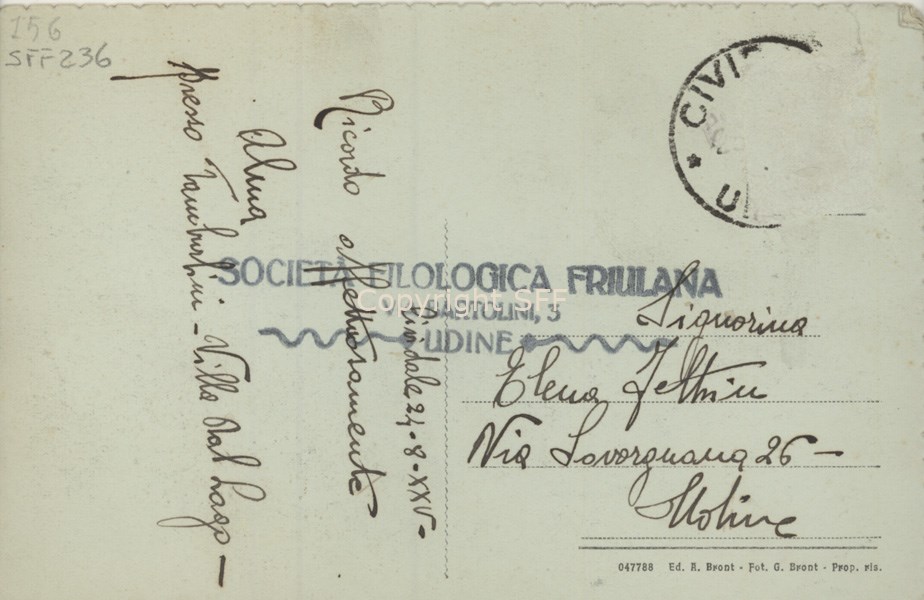 156
SFF236
CIVI
U
Cividale 24·8·XXV-
Ricordo affettuosamente
Alma
Presso Tamburlini - Villa Dal Lago -
SOCIETÀ FILOLOGICA FRIULANA
V. BARTOLINI, 3
UDINE
Copyright SFF
Signorina
Elena Feltrin
Via Savorgnana 26 -
Udine
047788 Ed. A. Bront - Fot. G. Bront - Prop. ris.